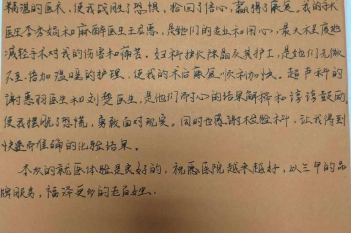 精湛的医术，使我战胜了恐惧，拾回了信心，赢得了康复。我的手术
医生李
和麻醉医生王
，是他们的
和细心，最大程度地
减轻手术对我的伤害和痛苦。妇科护长
及其护工，是他们无微
不至倍加温暖的护理，使我的术后康复顺利加快。超声科的
谢
医生和刘楚医生，是他们耐心的结果解释和谆谆鼓励
使我摆脱了恐慌，勇敢面对现实。同时也感谢检验科，让我得到
快速而准确的化验结果。
本次的就医体验是良好的，祝愿医院越来越好，以三甲的品
牌服务，福泽更多的老百姓。